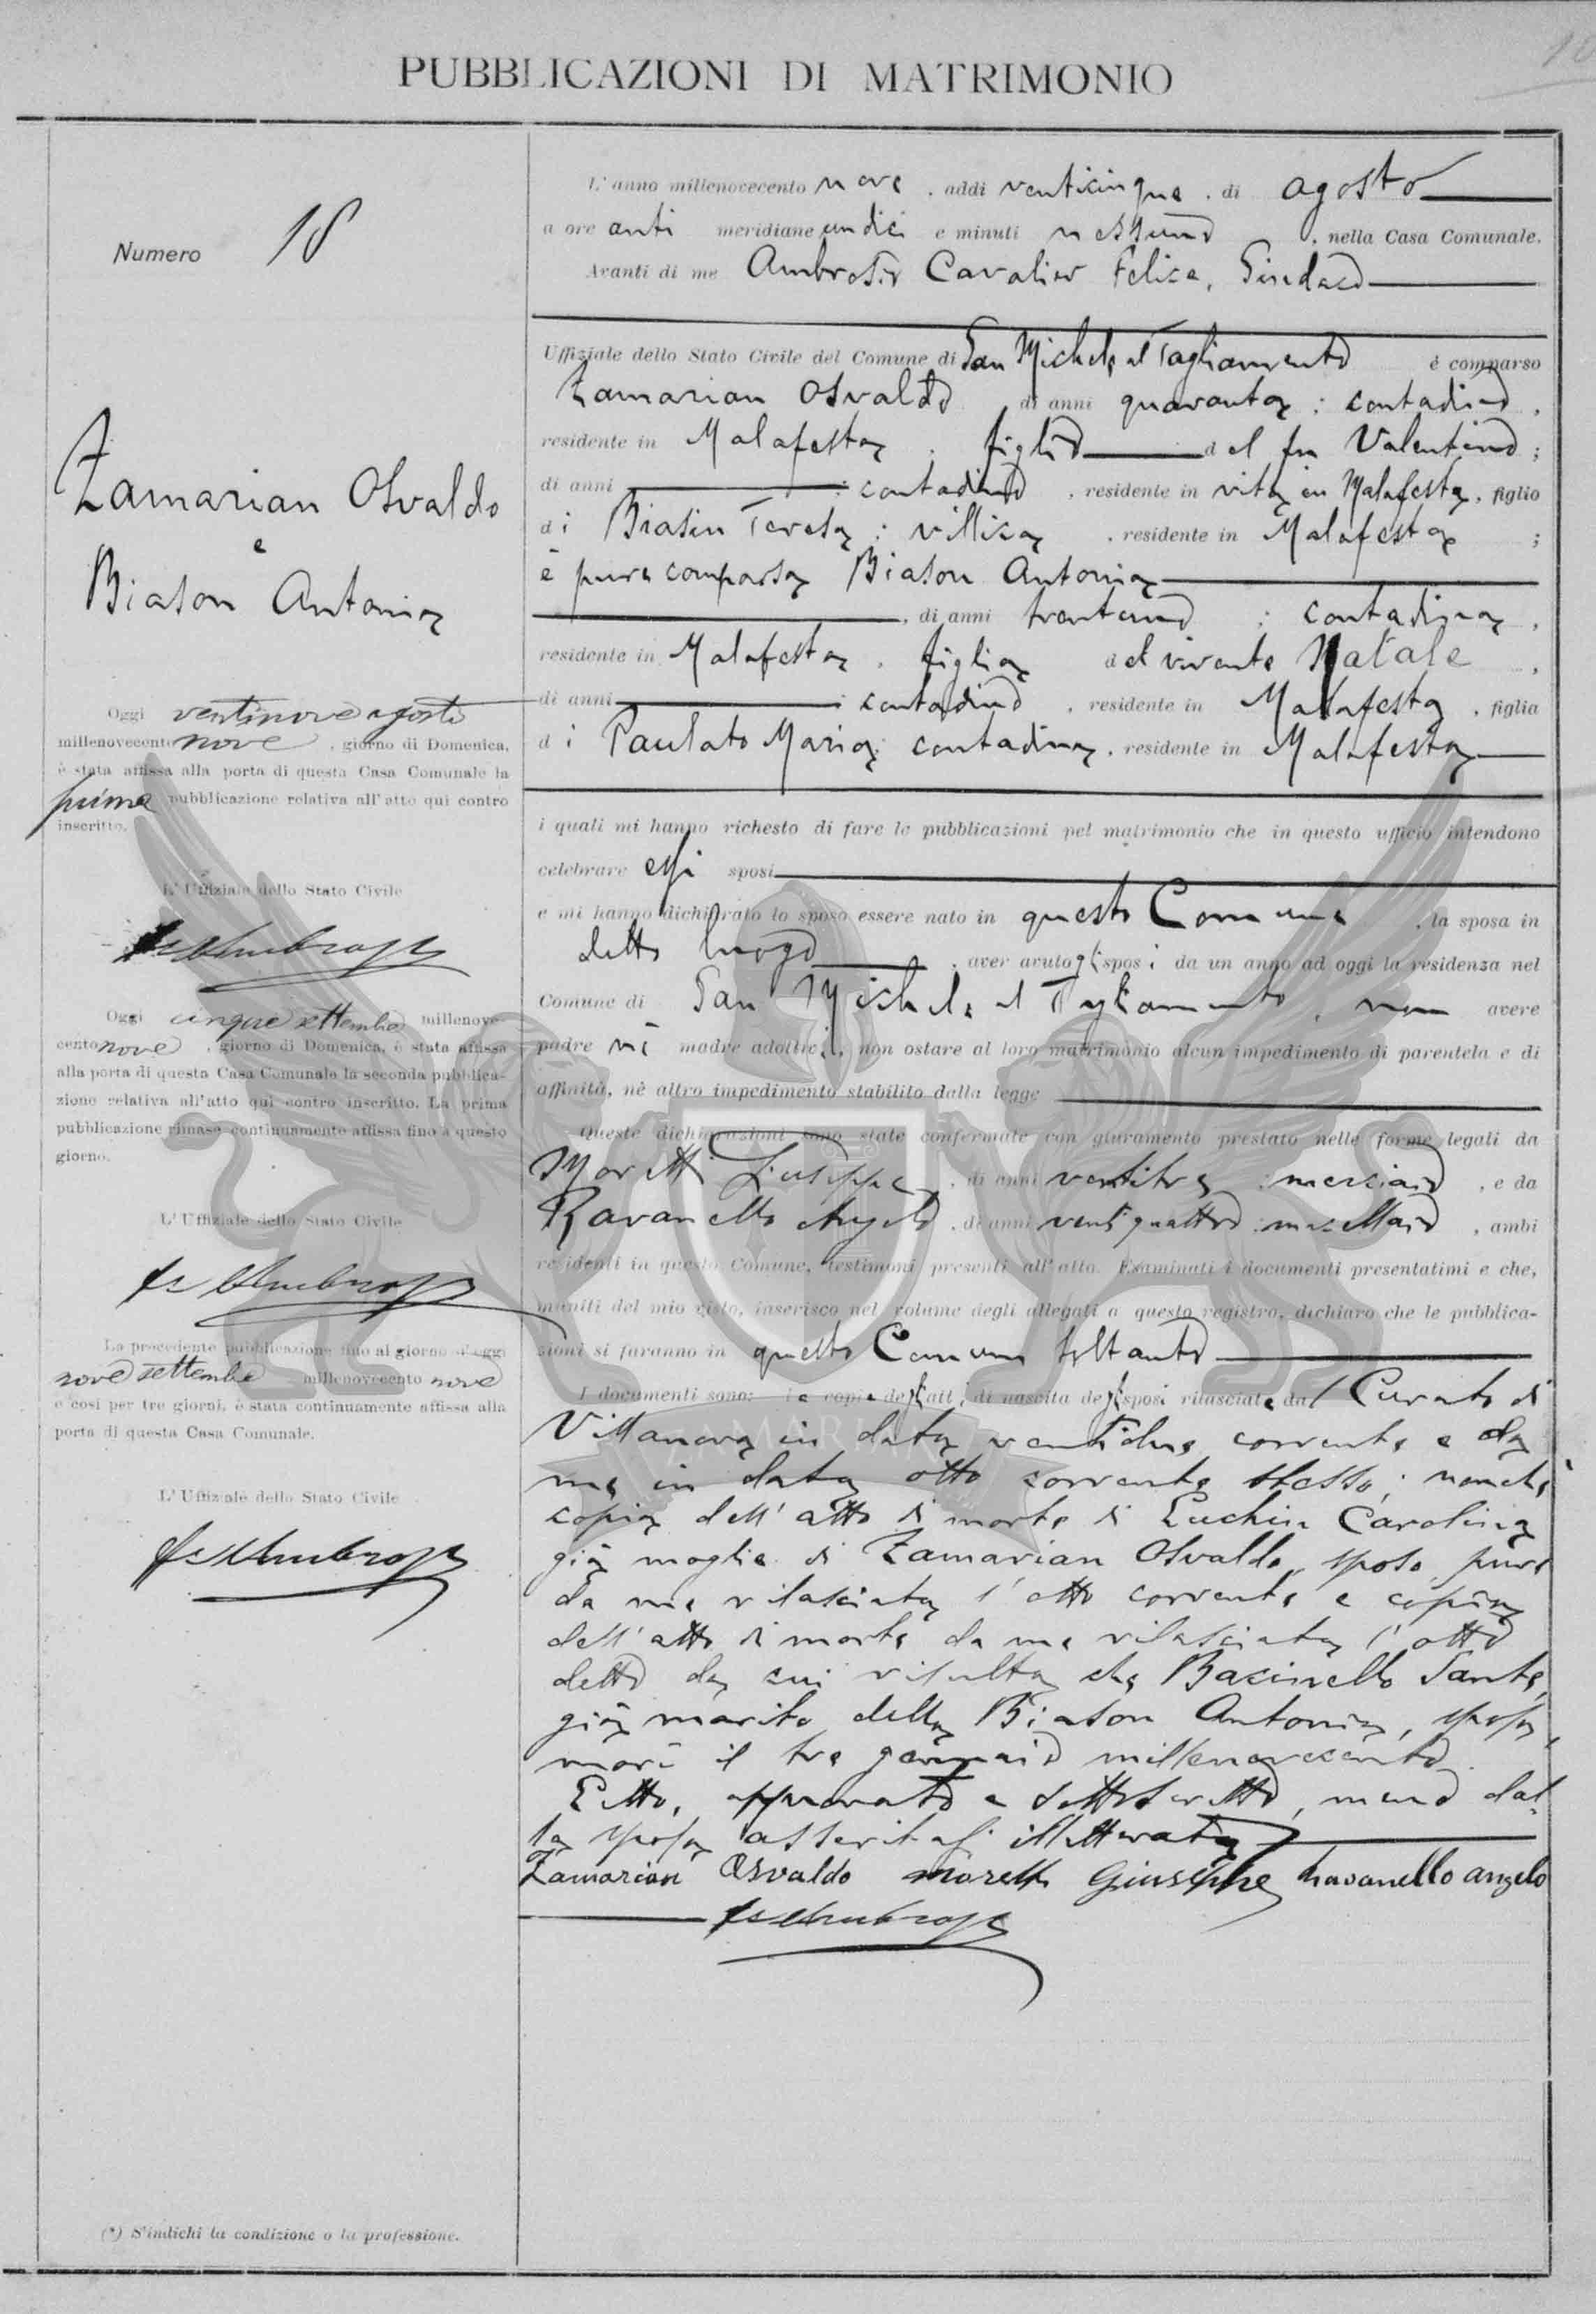 PUBBLICAZIONI DI MATRIMONIO
10
Numero 18
Zamarian Osvaldo
e
Biason Antonia
Oggi ventinove agosto
millenovecento nove, giorno di Domenica,
è stata affissa alla porta di questa Casa Comunale la
prima pubblicazione relativa all'atto qui contro
inscritto.
L'Uffiziale dello Stato Civile
Oggi cinque settembre millenove-
cento nove, giorno di Domenica, è stata affissa
alla porta di questa Casa Comunale la seconda pubblica-
zione relativa all'atto qui contro inscritto. La prima
pubblicazione rimase continuamente affissa fino a questo
giorno.
L'Uffiziale dello Stato Civile
La precedente pubblicazione fino al giorno d'oggi
nove settembre millenovecento nove
e così per tre giorni, è stata continuamente affissa alla
porta di questa Casa Comunale.
L'Uffiziale dello Stato Civile
(*) S'indichi la condizione o la professione.
L'anno millenovecento nove, addì venticinque, di agosto
a ore anti meridiane undici e minuti nessuno, nella Casa Comunale.
Avanti di me Ambrosio Cavalier Felice, Sindaco
Uffiziale dello Stato Civile del Comune di San Michele al Tagliamento è comparso
Zamarian Osvaldo di anni quaranta; contadino,
residente in Malafesta, figlio del fu Valentino;
di anni ; contadino, residente in vita in Malafesta, figlio
di Biasin Teresa; villica, residente in Malafesta;
è pure comparsa Biason Antonia
, di anni trentuno; contadina,
residente in Malafesta, figlia del vivente Natale,
di anni ; contadino, residente in Malafesta, figlia
di Paulato Maria; contadina, residente in Malafesta
i quali mi hanno richiesto di fare le pubblicazioni pel matrimonio che in questo ufficio intendono
celebrare essi sposi
e mi hanno dichiarato lo sposo essere nato in questo Comune, la sposa in
detto luogo, aver avuto gli sposi da un anno ad oggi la residenza nel
Comune di San Michele al Tagliamento, non avere
padre nè madre adottivi, non ostare al loro matrimonio alcun impedimento di parentela e di
affinità, nè altro impedimento stabilito dalla legge
Queste dichiarazioni sono state confermate con giuramento prestato nelle forme legali da
Moretti Giuseppe, di anni ventitre; merciaio, e da
Ravanello Angelo, di anni ventiquattro; macellaio, ambi
residenti in questo Comune, testimoni presenti all'atto. Esaminati i documenti presentatimi e che,
muniti del mio visto, inserisco nel volume degli allegati a questo registro, dichiaro che le pubblica-
zioni si faranno in questo Comune soltanto
I documenti sono: le copie degli atti di nascita degli sposi rilasciate dal Curato di
Villanova in data ventidue corrente e da
me in data otto corrente stesso; nonchè
copia dell'atto di morte di Luchin Carolina
già moglie di Zamarian Osvaldo, sposo pure
da me rilasciata l'otto corrente e copia
dell'atto di morte da me rilasciata l'otto
detto da cui risulta che Bacinello Sante,
già marito della Biason Antonia, sposa,
morì il tre gennaio millenovecento.
Letto, approvato e sottoscritto, meno dal-
la sposa asseritasi illetterata
Zamarian Osvaldo Moretti Giuseppe Ravanello Angelo
ZAMARIAN